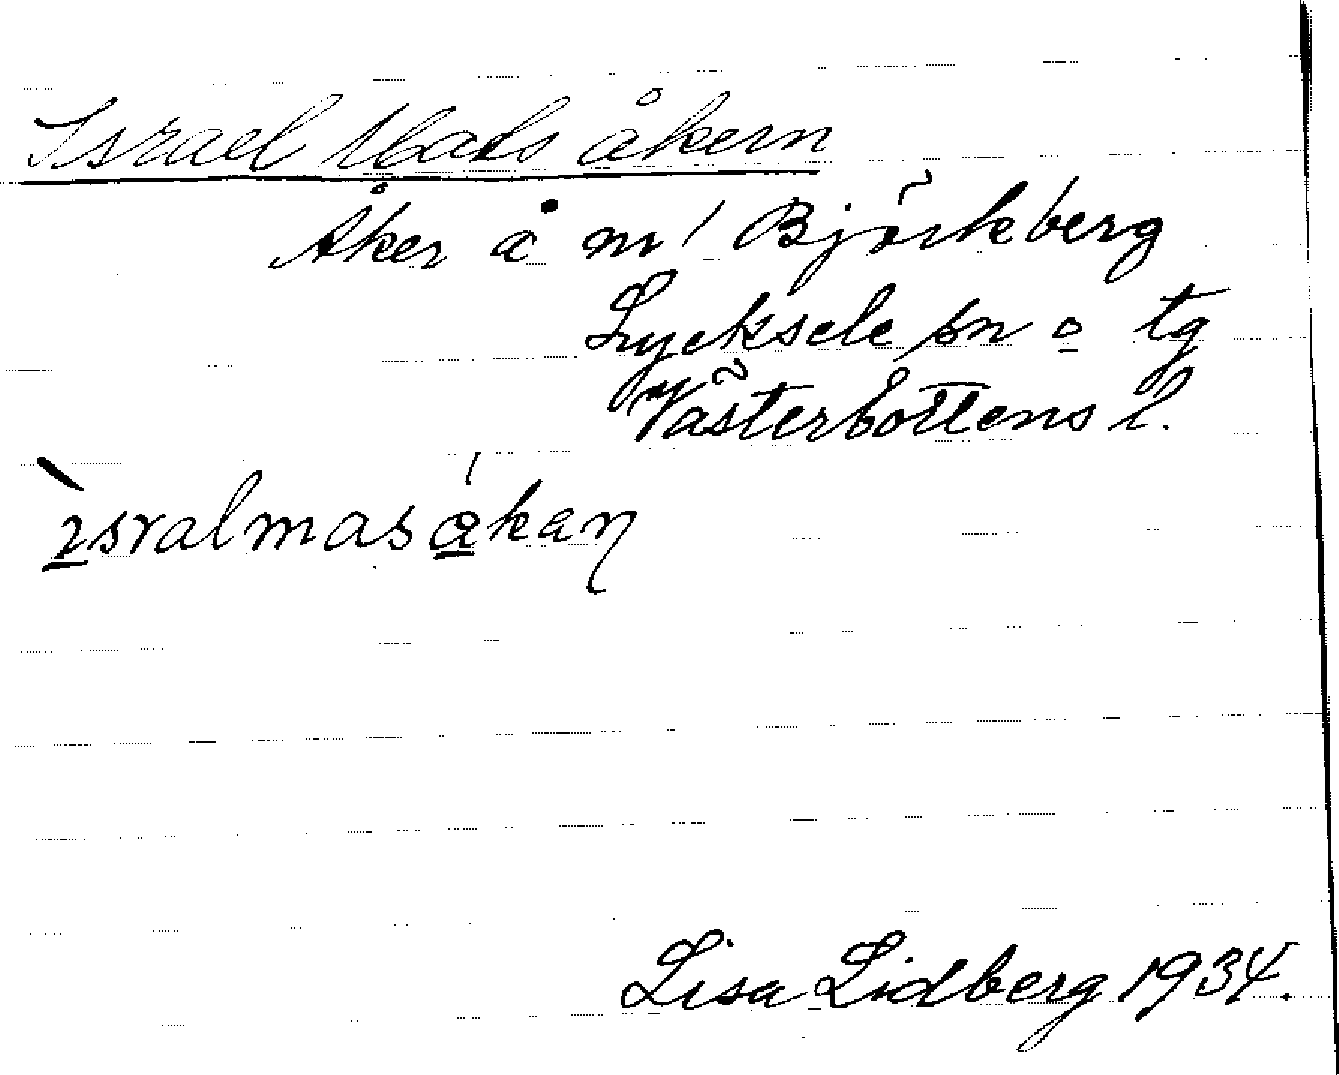 Israel Mats åkern
Åker å m/ Björkberg
Lycksele sn o tg
Västerbottens l.
ìsralmasákaṇ
Lisa Lidberg 1934.